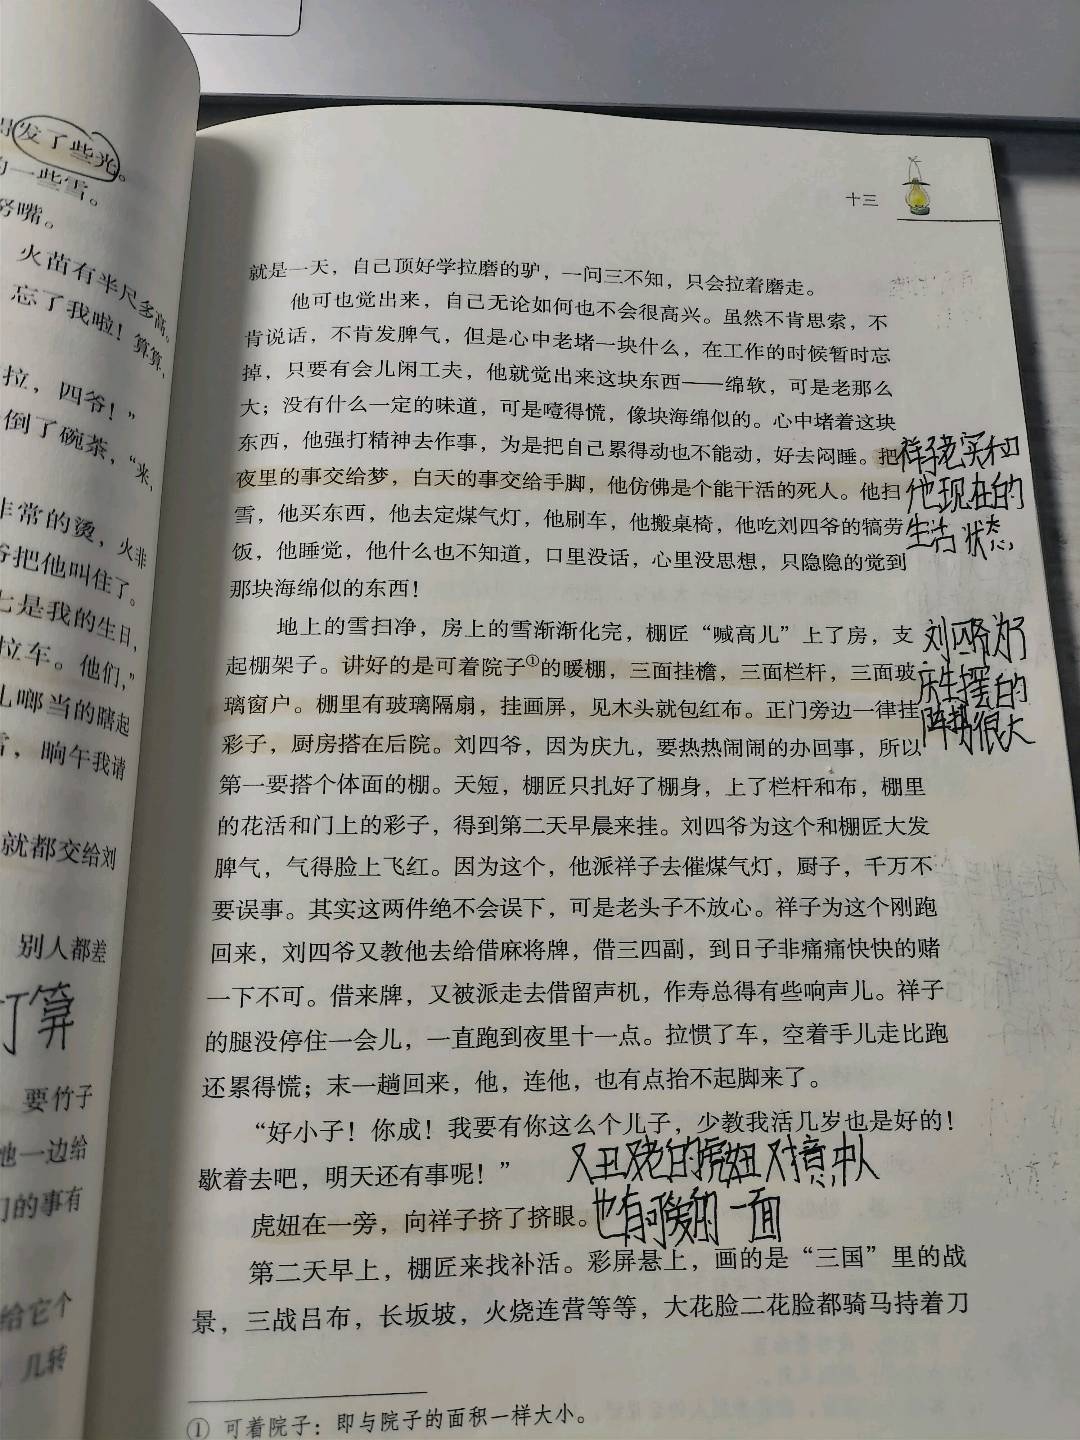 发了些光。
的一些雪。
努嘴。
火苗有半尺多高。
忘了我啦！算算，
拉，四爷！”
倒了碗茶，“来，
非常的烫，火非
爷把他叫住了。
七是我的生日，
拉车。他们，”
儿啷当的瞎起
雪，晌午我请
就都交给刘
别人都差
打算
要竹子
他一边给
们的事有
给它个
几转
十三
就是一天，自己顶好学拉磨的驴，一问三不知，只会拉着磨走。
他可也觉出来，自己无论如何也不会很高兴。虽然不肯思索，不
肯说话，不肯发脾气，但是心中老堵一块什么，在工作的时候暂时忘
掉，只要有会儿闲工夫，他就觉出来这块东西——绵软，可是老那么
大；没有什么一定的味道，可是噎得慌，像块海绵似的。心中堵着这块
东西，他强打精神去作事，为是把自己累得动也不能动，好去闷睡。把
夜里的事交给梦，白天的事交给手脚，他仿佛是个能干活的死人。他扫
雪，他买东西，他去定煤气灯，他刷车，他搬桌椅，他吃刘四爷的犒劳
饭，他睡觉，他什么也不知道，口里没话，心里没思想，只隐隐的觉到
那块海绵似的东西！
祥子老实和
他现在的
生活状态
地上的雪扫净，房上的雪渐渐化完，棚匠“喊高儿”上了房，支
起棚架子。讲好的是可着院子①的暖棚，三面挂檐，三面栏杆，三面玻
璃窗户。棚里有玻璃隔扇，挂画屏，见木头就包红布。正门旁边一律挂
彩子，厨房搭在后院。刘四爷，因为庆九，要热热闹闹的办回事，所以
第一要搭个体面的棚。天短，棚匠只扎好了棚身，上了栏杆和布，棚里
的花活和门上的彩子，得到第二天早晨来挂。刘四爷为这个和棚匠大发
脾气，气得脸上飞红。因为这个，他派祥子去催煤气灯，厨子，千万不
要误事。其实这两件绝不会误下，可是老头子不放心。祥子为这个刚跑
回来，刘四爷又教他去给借麻将牌，借三四副，到日子非痛痛快快的赌
一下不可。借来牌，又被派走去借留声机，作寿总得有些响声儿。祥子
的腿没停住一会儿，一直跑到夜里十一点。拉惯了车，空着手儿走比跑
还累得慌；末一趟回来，他，连他，也有点抬不起脚来了。
刘四爷为了
庆生摆的
阵势很大
“好小子！你成！我要有你这么个儿子，少教我活几岁也是好的！
歇着去吧，明天还有事呢！”
又丑又老的虎妞对意中人
虎妞在一旁，向祥子挤了挤眼。
也有可爱的一面
第二天早上，棚匠来找补活。彩屏悬上，画的是“三国”里的战
景，三战吕布，长坂坡，火烧连营等等，大花脸二花脸都骑马持着刀
① 可着院子：即与院子的面积一样大小。